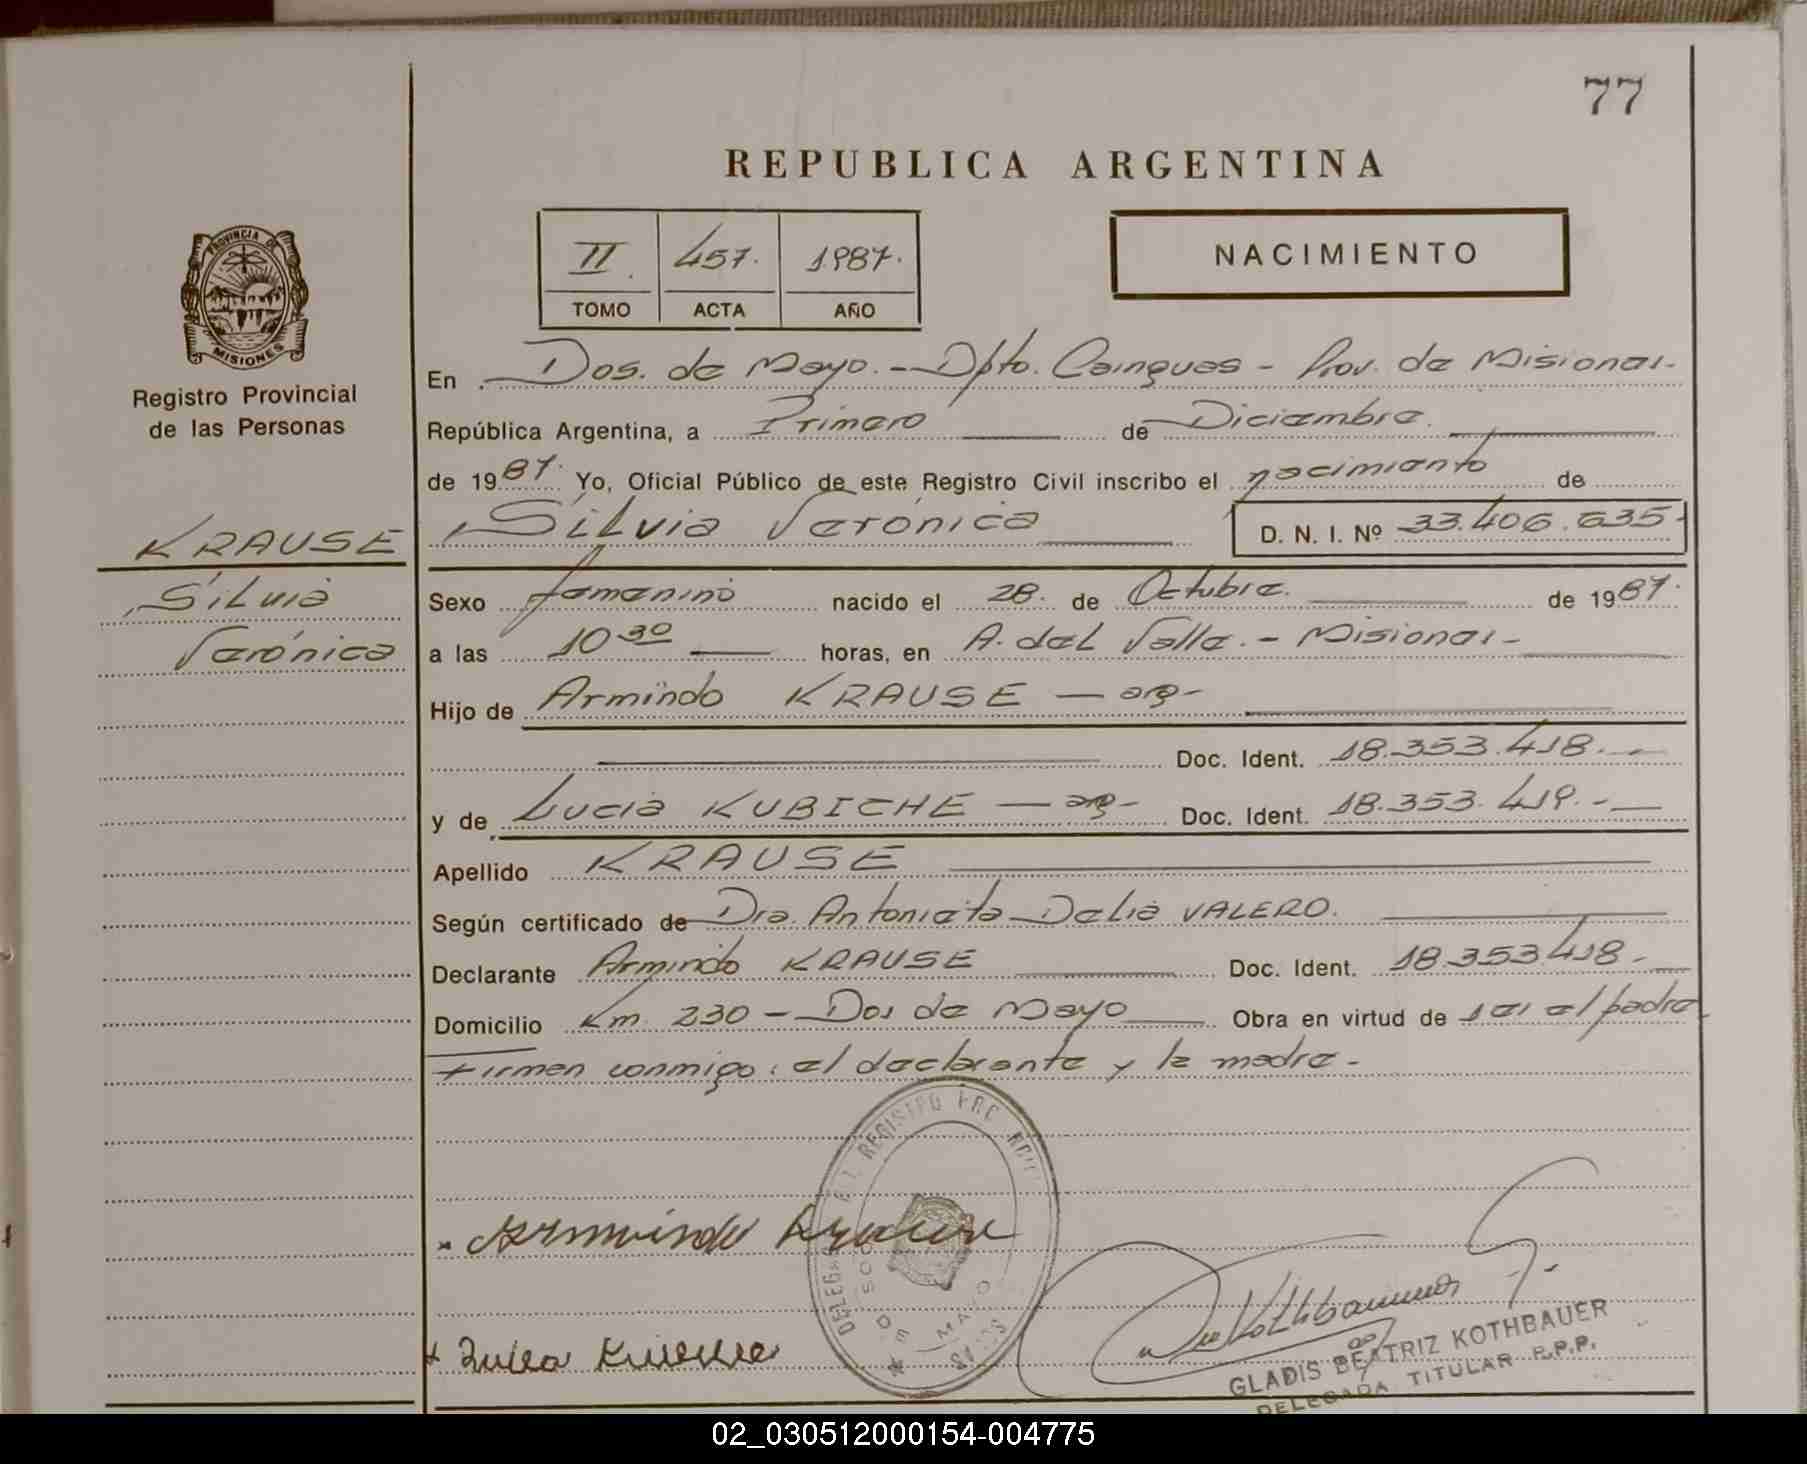 77
REPUBLICA ARGENTINA
II. 457. 1987.
TOMO ACTA AÑO
NACIMIENTO
PROVINCIA DE
MISIONES
Registro Provincial
de las Personas
En Dos de Mayo. - Dpto. Cainguas - Prov. de Misiones.-
República Argentina, a Primero de Diciembre.
de 1987. Yo, Oficial Público de este Registro Civil inscribo el nacimiento de
Silvia Verónica D. N. I. Nº 33.406.635.
KRAUSE
Silvia
Verónica
Sexo femenino nacido el 28. de Octubre. de 1987.
a las 10 30 horas, en A. del Valle. - Misiones -
Hijo de Armindo KRAUSE — arg-
Doc. Ident. 18.353.418.-
y de Lucia KUBICHE — arg- Doc. Ident. 18.353.419.-
Apellido KRAUSE
Según certificado de Dra. Antonieta Delia VALERO.
Declarante Armindo KRAUSE Doc. Ident. 18.353.418.-
Domicilio Km. 230 - Dos de Mayo Obra en virtud de ser el padre
Firman conmigo: el declarante y la madre.-
REGISTRO
DOS DE MAYO
Armindo
Kothbauer
GLADIS BEATRIZ KOTHBAUER
DELEGADA TITULAR R.P.P.
02_030512000154-004775